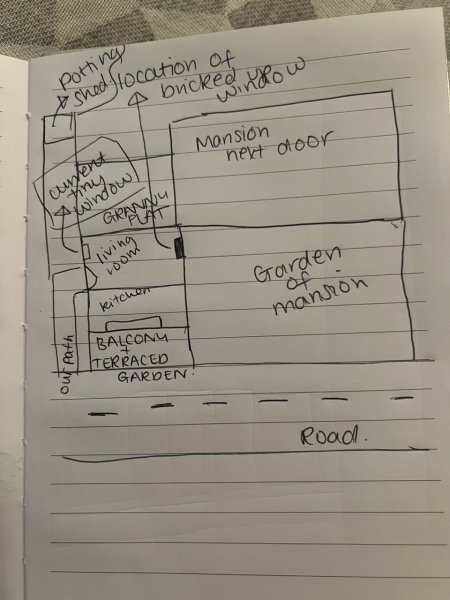 potting
shed
location of
bricked up
window
Mansion
next door
current
tiny
window
GRANNY
FLAT
living
room
Garden
of
mansion
kitchen
BALCONY
+
TERRACED
GARDEN.
our path
Road.